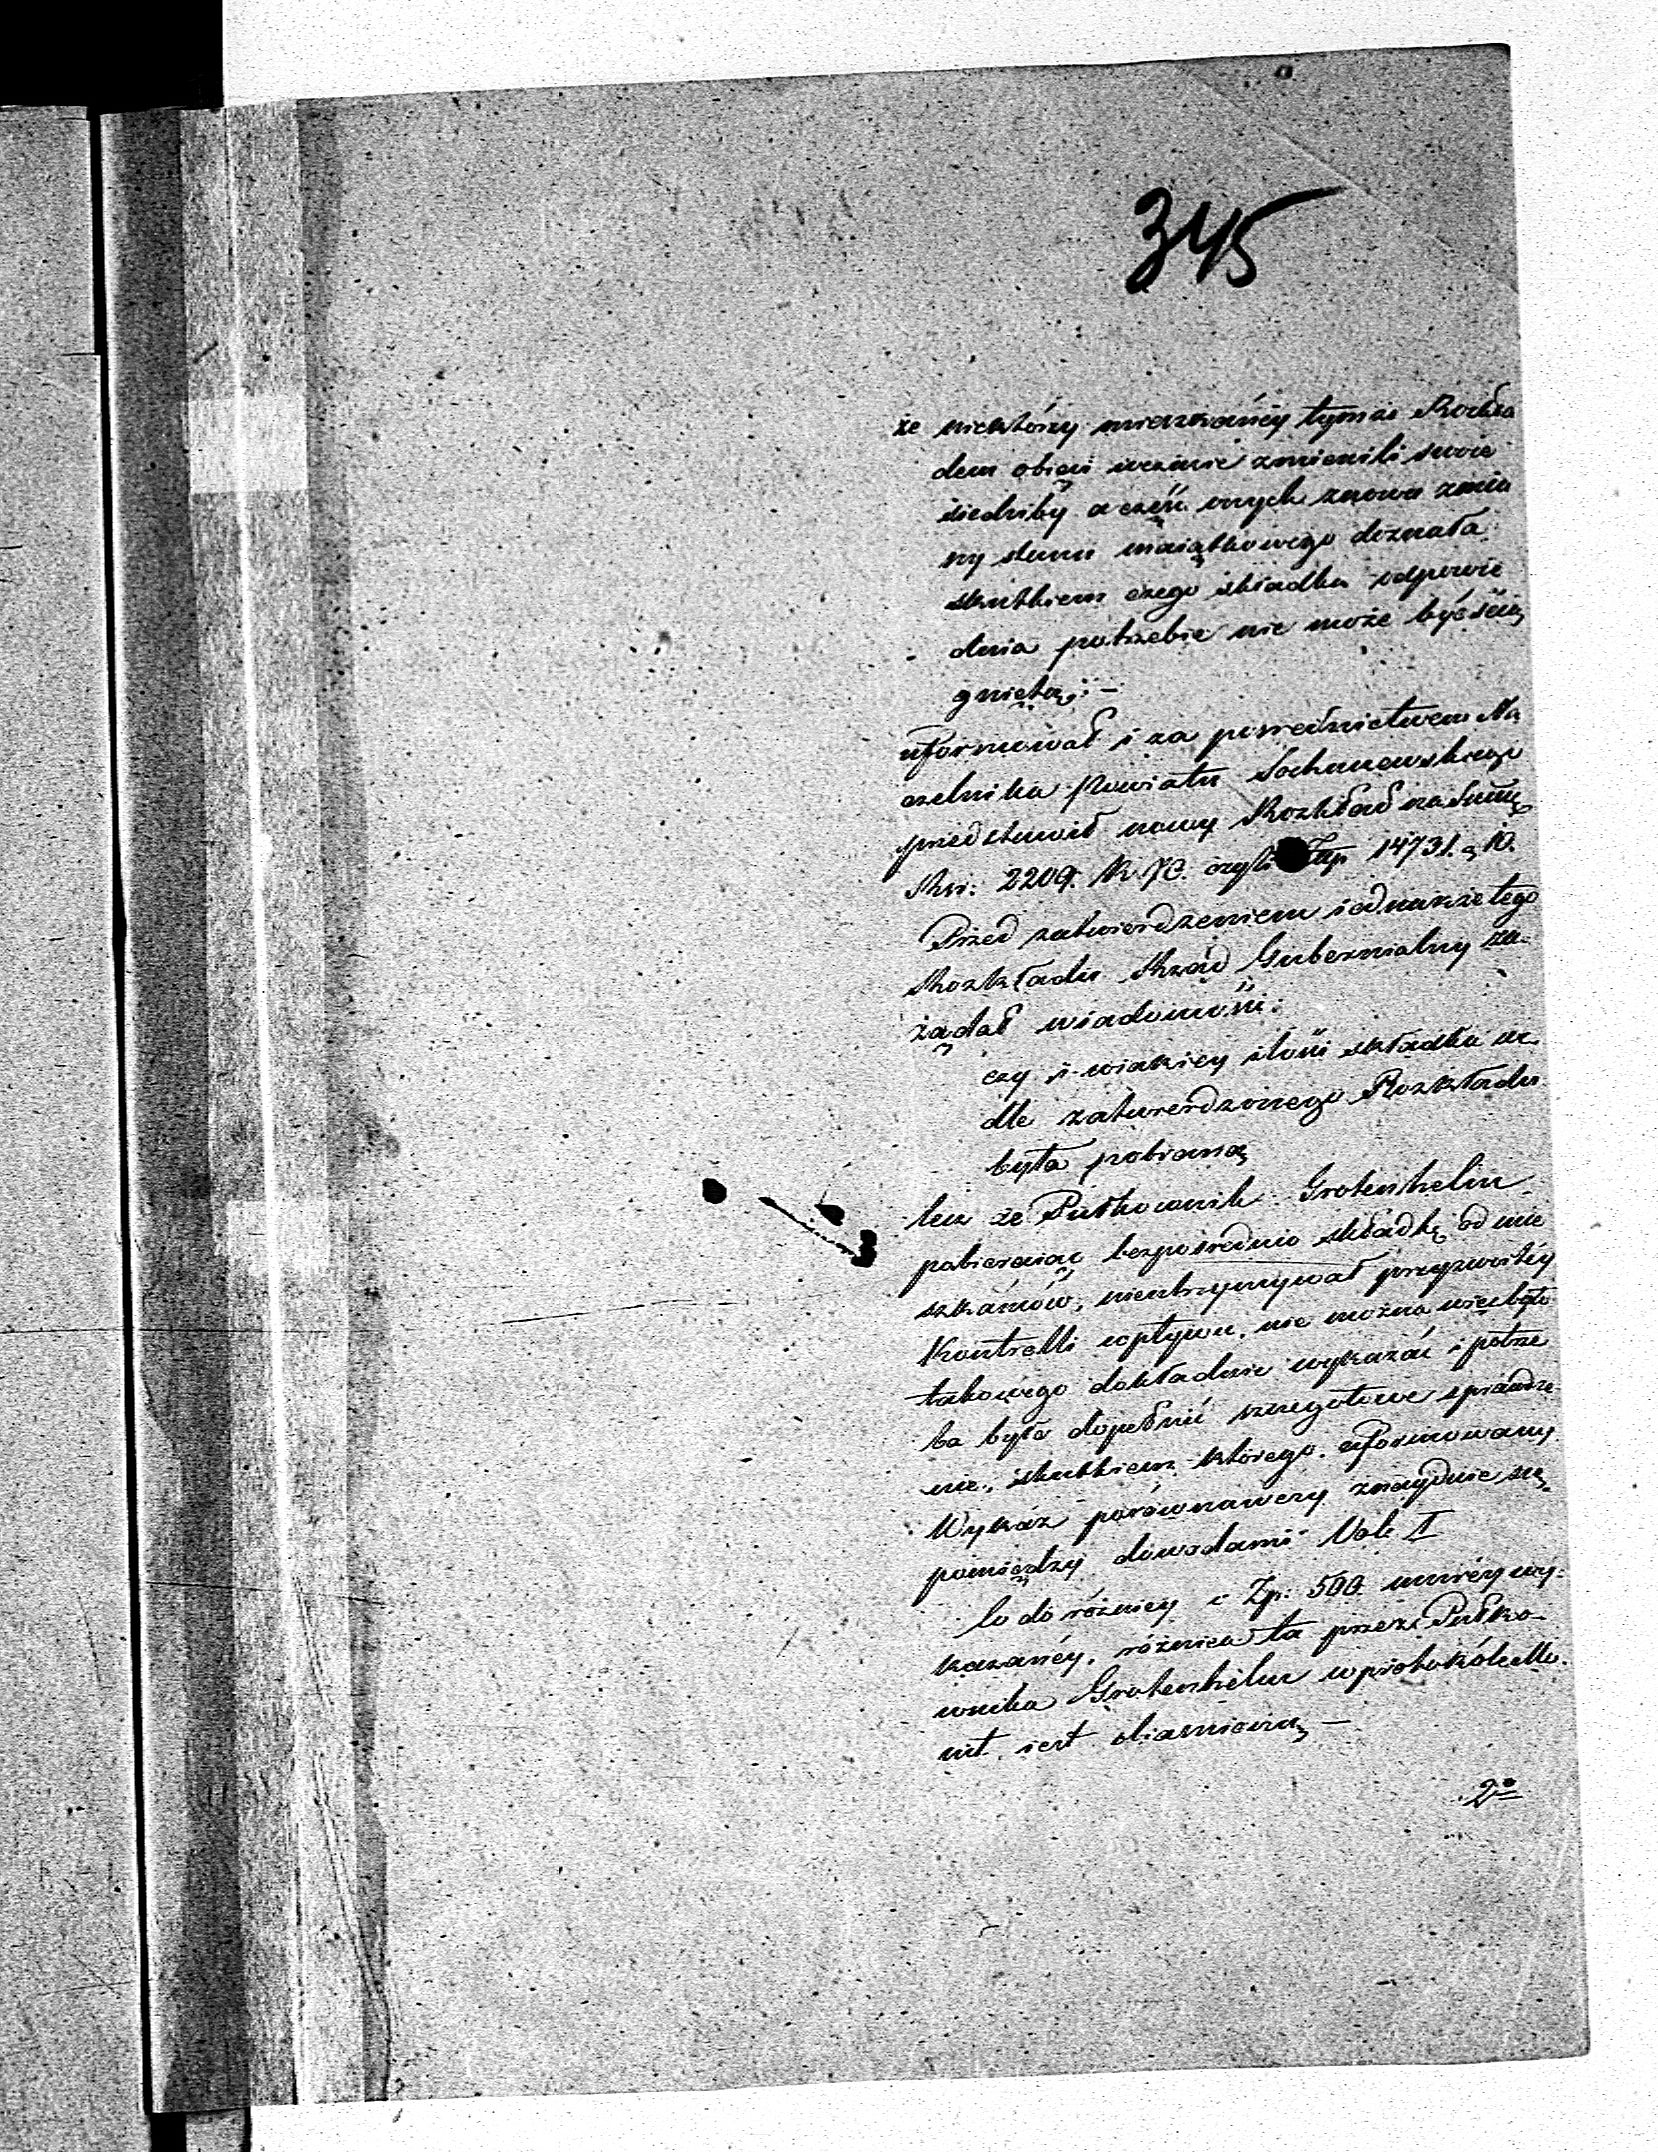 345
że niektórzy mieszkańcy tymże Rozkła
dem objęci wczasie zmienili swoie
siedziby a część onych znowu zmia
ny stanu maiątkowego doznała
skutkiem czego składka odpowie
dnia potrzebie nie może być ścią
gniętą; —
uformował i za pośrednictwem Na
czelnika Powiatu Sochaczewskiego
przedstawił nowy Rozkład na Summę
Rsr: 2209. K. 70. czyli Złp 14731. g 10.
Przed zatwierdzeniem iednakże tego
Rozkładu Rząd Gubernialny za-
żądał wiadomości:
czy i wiakiey ilości składka we
dle zatwierdzonego Rozkładu
była pobraną
lecz że Pułkownik Grotenhelm
pobieraiąc bezpośrednio składkę od mie
szkańców, nieutrzymywał przyzwoitéy
Kontrolli wpływu, nie można więc było
takowego dokładnie wykazać i potrze
ba było dopełnić szczegółowe sprawdze
nie, skutkiem którego uformowany
Wykaz porównawczy znayduie się
pomiędzy dowodami Vol: I
Co do różnicy Złp: 500 mniéy wy-
kazanéy, różnica ta przez Pułko-
wnika Grotenhelm wprotokóle
iest obiaśnioną —
2º